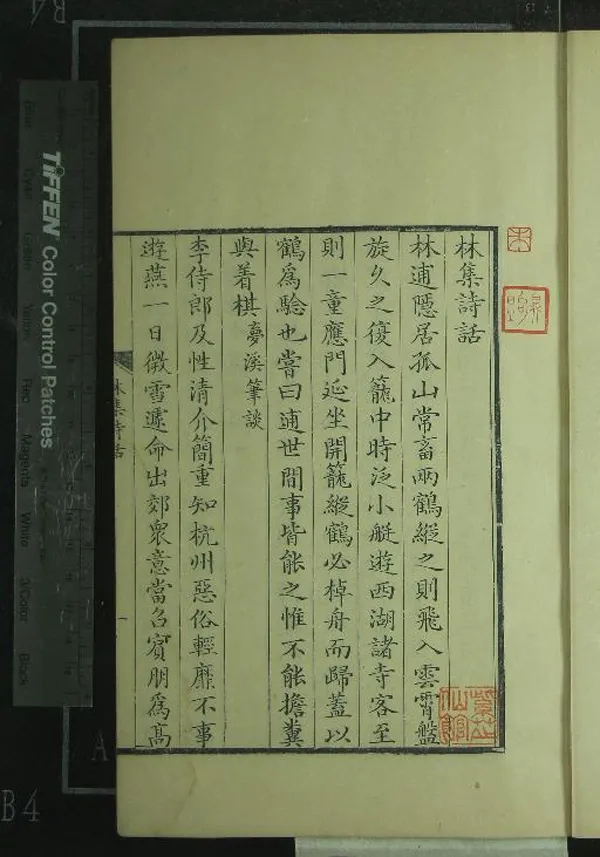 林集詩話
林逋隱居孤山常畜兩鶴縱之則飛入雲霄盤
旋久之復入籠中時泛小艇遊西湖諸寺客至
則一童應門延坐開籠縱鶴必棹舟而歸蓋以
鶴爲驗也嘗曰逋世間事皆能之惟不能擔糞
與着棋夢溪筆談
李侍郎及性清介簡重知杭州惡俗輕靡不事
遊燕一日微雪遽命出郊衆意當召賓朋爲高
林集詩話
一
TIFFEN Color Control Patches
Blue Cyan Green Yellow Red Magenta White 3/Color Black
A
B4
B4